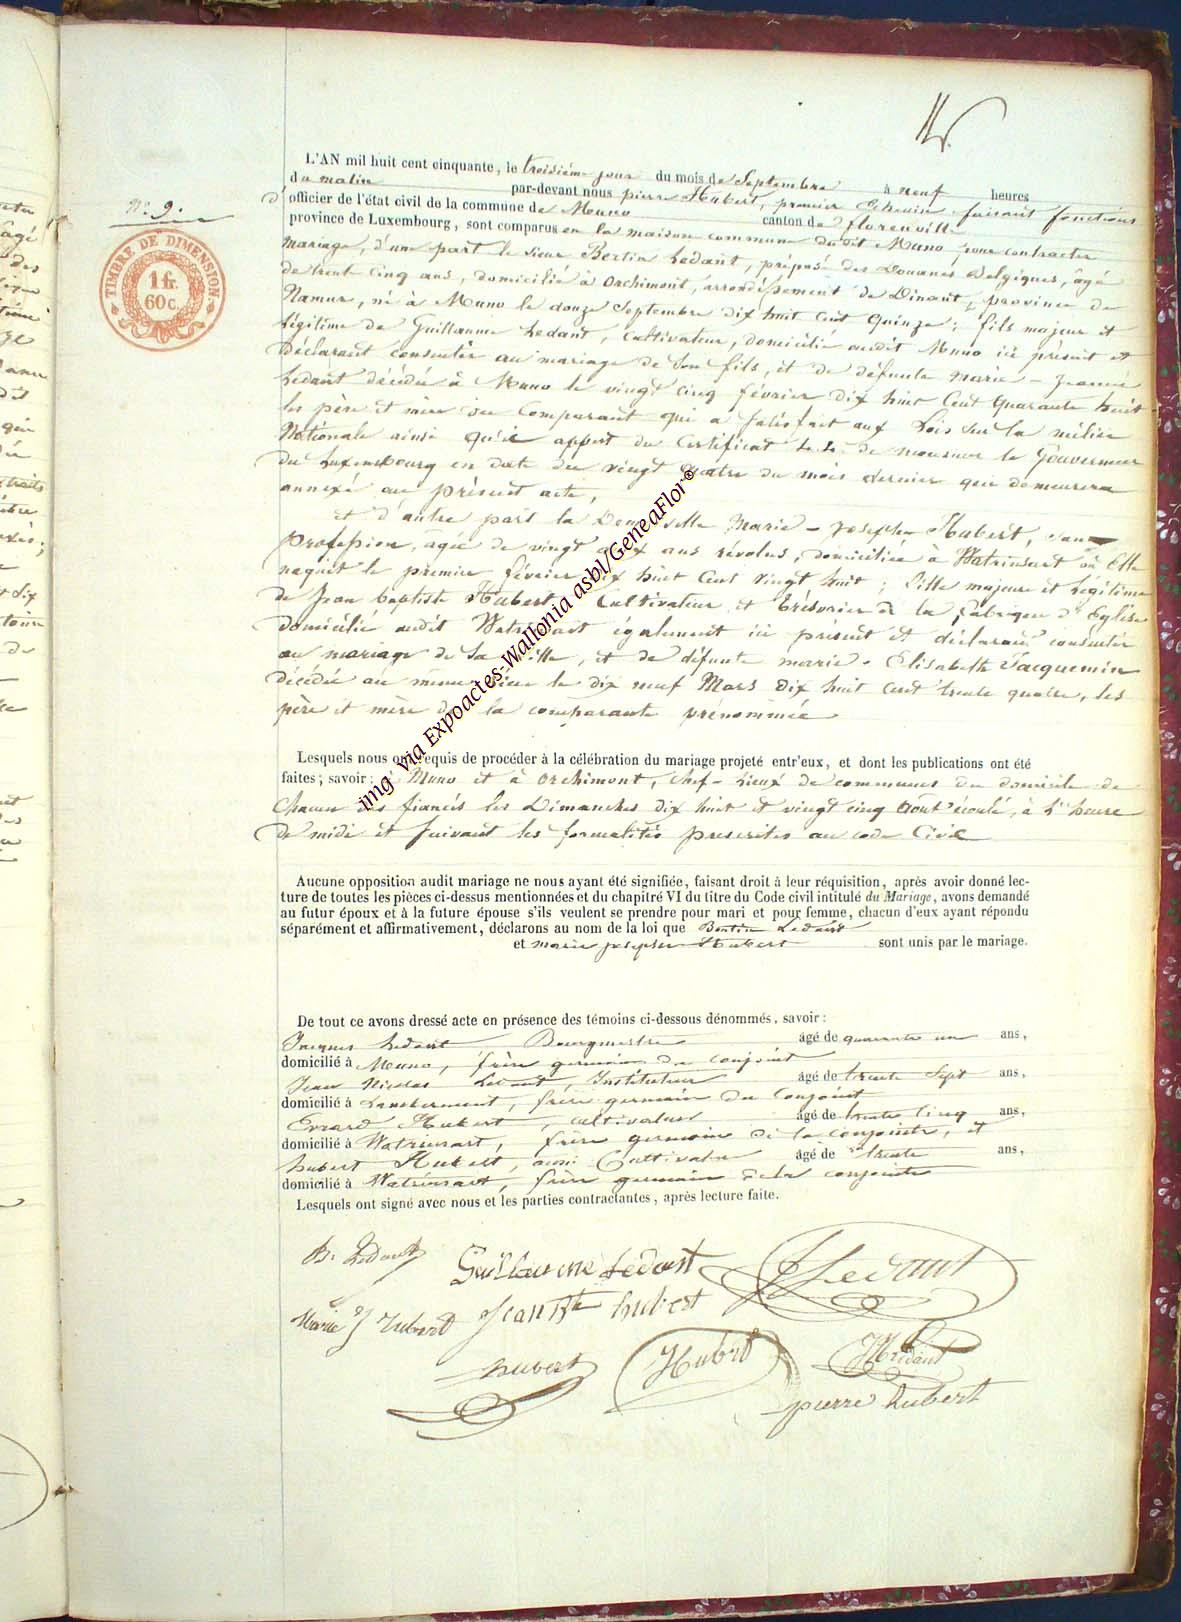 N.° 9.
TIMBRE DE DIMENSION
1 fr.
60 c.
L'AN mil huit cent cinquante, le troisième jour du mois de Septembre à neuf heures
du matin par-devant nous pierre Hubert, premier Echevin faisant fonctions
d' officier de l'état civil de la commune de Muno canton de florenville
province de Luxembourg, sont comparus en la maison commune du dit Muno pour contracter
mariage, d'une part le sieur Bertin Ledant, préposé des Douanes Belgiques, âgé
de trente cinq ans, domicilié à Orchimont, arrondissement de Dinant, province de
Namur, né à Muno le douze Septembre dix huit cent quinze; fils majeur et
légitime de Guillaume Ledant, cultivateur, domicilié audit Muno ici présent et
déclarant consentir au mariage de son fils, et de défunte Marie - Jeanne
Ledant décédée à Muno le vingt cinq février dix huit cent quarante huit
les père et mère du comparant qui a satisfait aux Lois sur la milice
Nationale ainsi qu'il appert du certificat de monsieur le Gouverneur
du Luxembourg en date du vingt quatre du mois dernier que demeurera
annexé au présent acte,
et d'autre part la Demoiselle Marie - Josephe Hubert, sans
profession, agée de vingt deux ans révolus, domiciliée à Watrinsart où Elle
naquit le premier février dix huit cent vingt huit; fille majeure et légitime
de Jean baptiste Hubert, Cultivateur et trésorier de la fabrique d'Eglise
domicilié audit Watrinsart également ici présent et déclarant consentir
au mariage de sa fille, et de défunte marie - Elisabeth Jacquemin
décédée au meme lieu le dix neuf Mars dix huit cent trente quatre, les
père et mère de la comparante prénommée
Lesquels nous ont requis de procéder à la célébration du mariage projeté entr'eux, et dont les publications ont été
faites; savoir: à Muno et à Orchimont, chef - Lieux de communes du domicile de
chacun des fiancés les Dimanches dix huit et vingt cinq Août écoulé, à l'heure
de midi et suivant les formalités prescrites au code Civil
Aucune opposition audit mariage ne nous ayant été signifiée, faisant droit à leur réquisition, après avoir donné lec-
ture de toutes les pièces ci-dessus mentionnées et du chapitré VI du titre du Code civil intitulé du Mariage, avons demandé
au futur époux et à la future épouse s'ils veulent se prendre pour mari et pour femme, chacun d'eux ayant répondu
séparément et affirmativement, déclarons au nom de la loi que Bertin Ledant
et marie josephe Hubert sont unis par le mariage.
De tout ce avons dressé acte en présence des témoins ci-dessous dénommés, savoir:
Jacques Ledant Bourgmestre âgé de quarante un ans,
domicilié à Muno, frère germain du conjoint
Jean Nicolas Ledant, Instituteur âgé de trente sept ans,
domicilié à frère germain du conjoint
Evrard Hubert, cultivateur âgé de trente cinq ans,
domicilié à Watrinsart, frère germain de la conjointe, et
hubert Hubert, aussi Cultivateur âgé de trente ans,
domicilié à Watrinsart, frère germain de la conjointe
Lesquels ont signé avec nous et les parties contractantes, après lecture faite.
B. Ledant Guillaume Ledant J Ledant
Marie J hubert Jean Bte hubert
hubert Hubert JN Ledant
pierre hubert
img via Expoactes-Wallonia asbl/GeneaFlor©